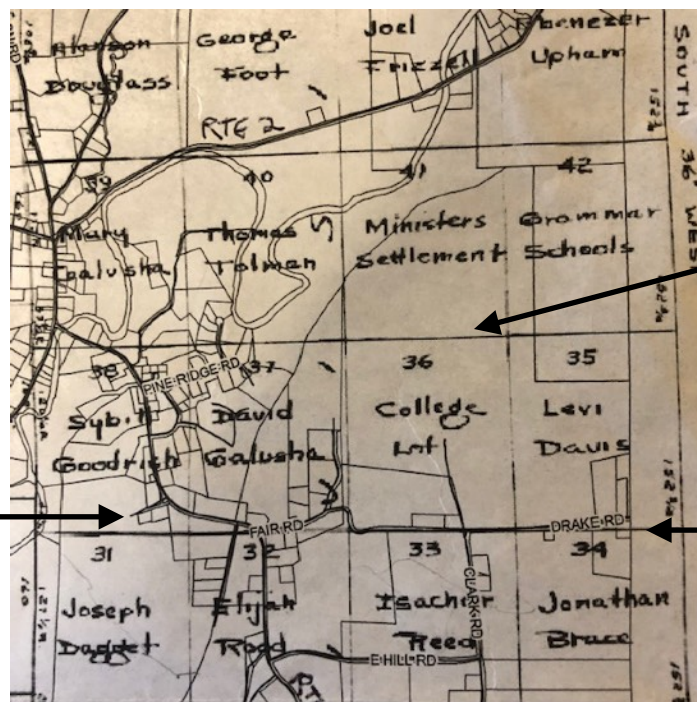 Alanson
Douglass
George
Foot
Joel
Frizzell
Ebenezer
Upham
SOUTH 36° WEST
152¾
RTE 2
39
40
41
42
Mary
Galusha
Thomas
Tolman
Ministers
Settlement
Grammar
Schools
38
37
36
35
PINE RIDGE RD
Sybil
Goodrich
David
Galusha
College
Lot
Levi
Davis
FAIR RD
DRAKE RD
31
32
33
34
CLARK RD
Joseph
Dagget
Elijah
Rood
Isachier
Reed
Jonathan
Brace
E HILL RD
160